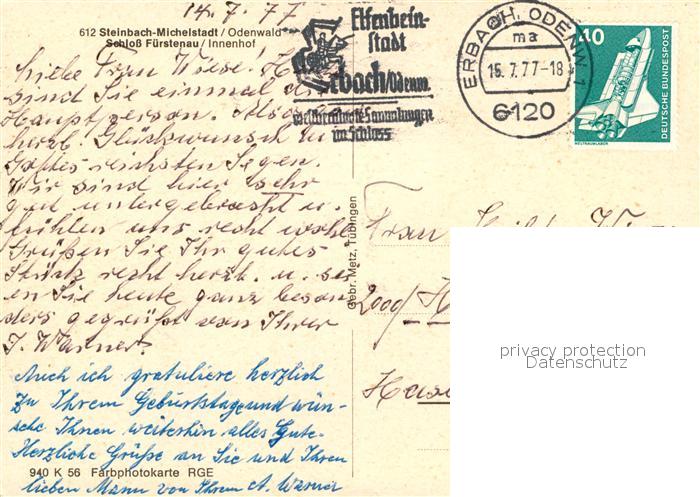 14.7.77
612 Steinbach-Michelstadt / Odenwald
Schloß Fürstenau / Innenhof
Liebe Frau Wiese! H
sind Sie einmal die
Hauptperson. Also
herzl. Glückwunsch u.
Gottes reichsten Segen.
Wir sind hier sehr
gut untergebracht u.
fühlen uns recht wohl.
Grüßen Sie Ihr gutes
recht herzl. u. sei-
en Sie heute ganz beson-
ders gegrüßt von Ihrer
J. Warner.
Auch ich gratuliere herzlich
zu Ihrem Geburtstage und wün-
sche Ihnen weiterhin alles Gute.
Herzliche Grüße an Sie und Ihren
lieben Mann von Ihrem A. Warner
940 K 56 Farbphotokarte RGE
Gebr. Metz, Tübingen
Elfenbein-
stadt
Erbach/Odenw.
weltberühmte Sammlungen
im Schloss
ERBACH, ODENW 1
ma
15.7.77-18
6120
40
DEUTSCHE BUNDESPOST
WELTRAUMLABOR
Frau
2000/H
Hase
privacy protection
Datenschutz